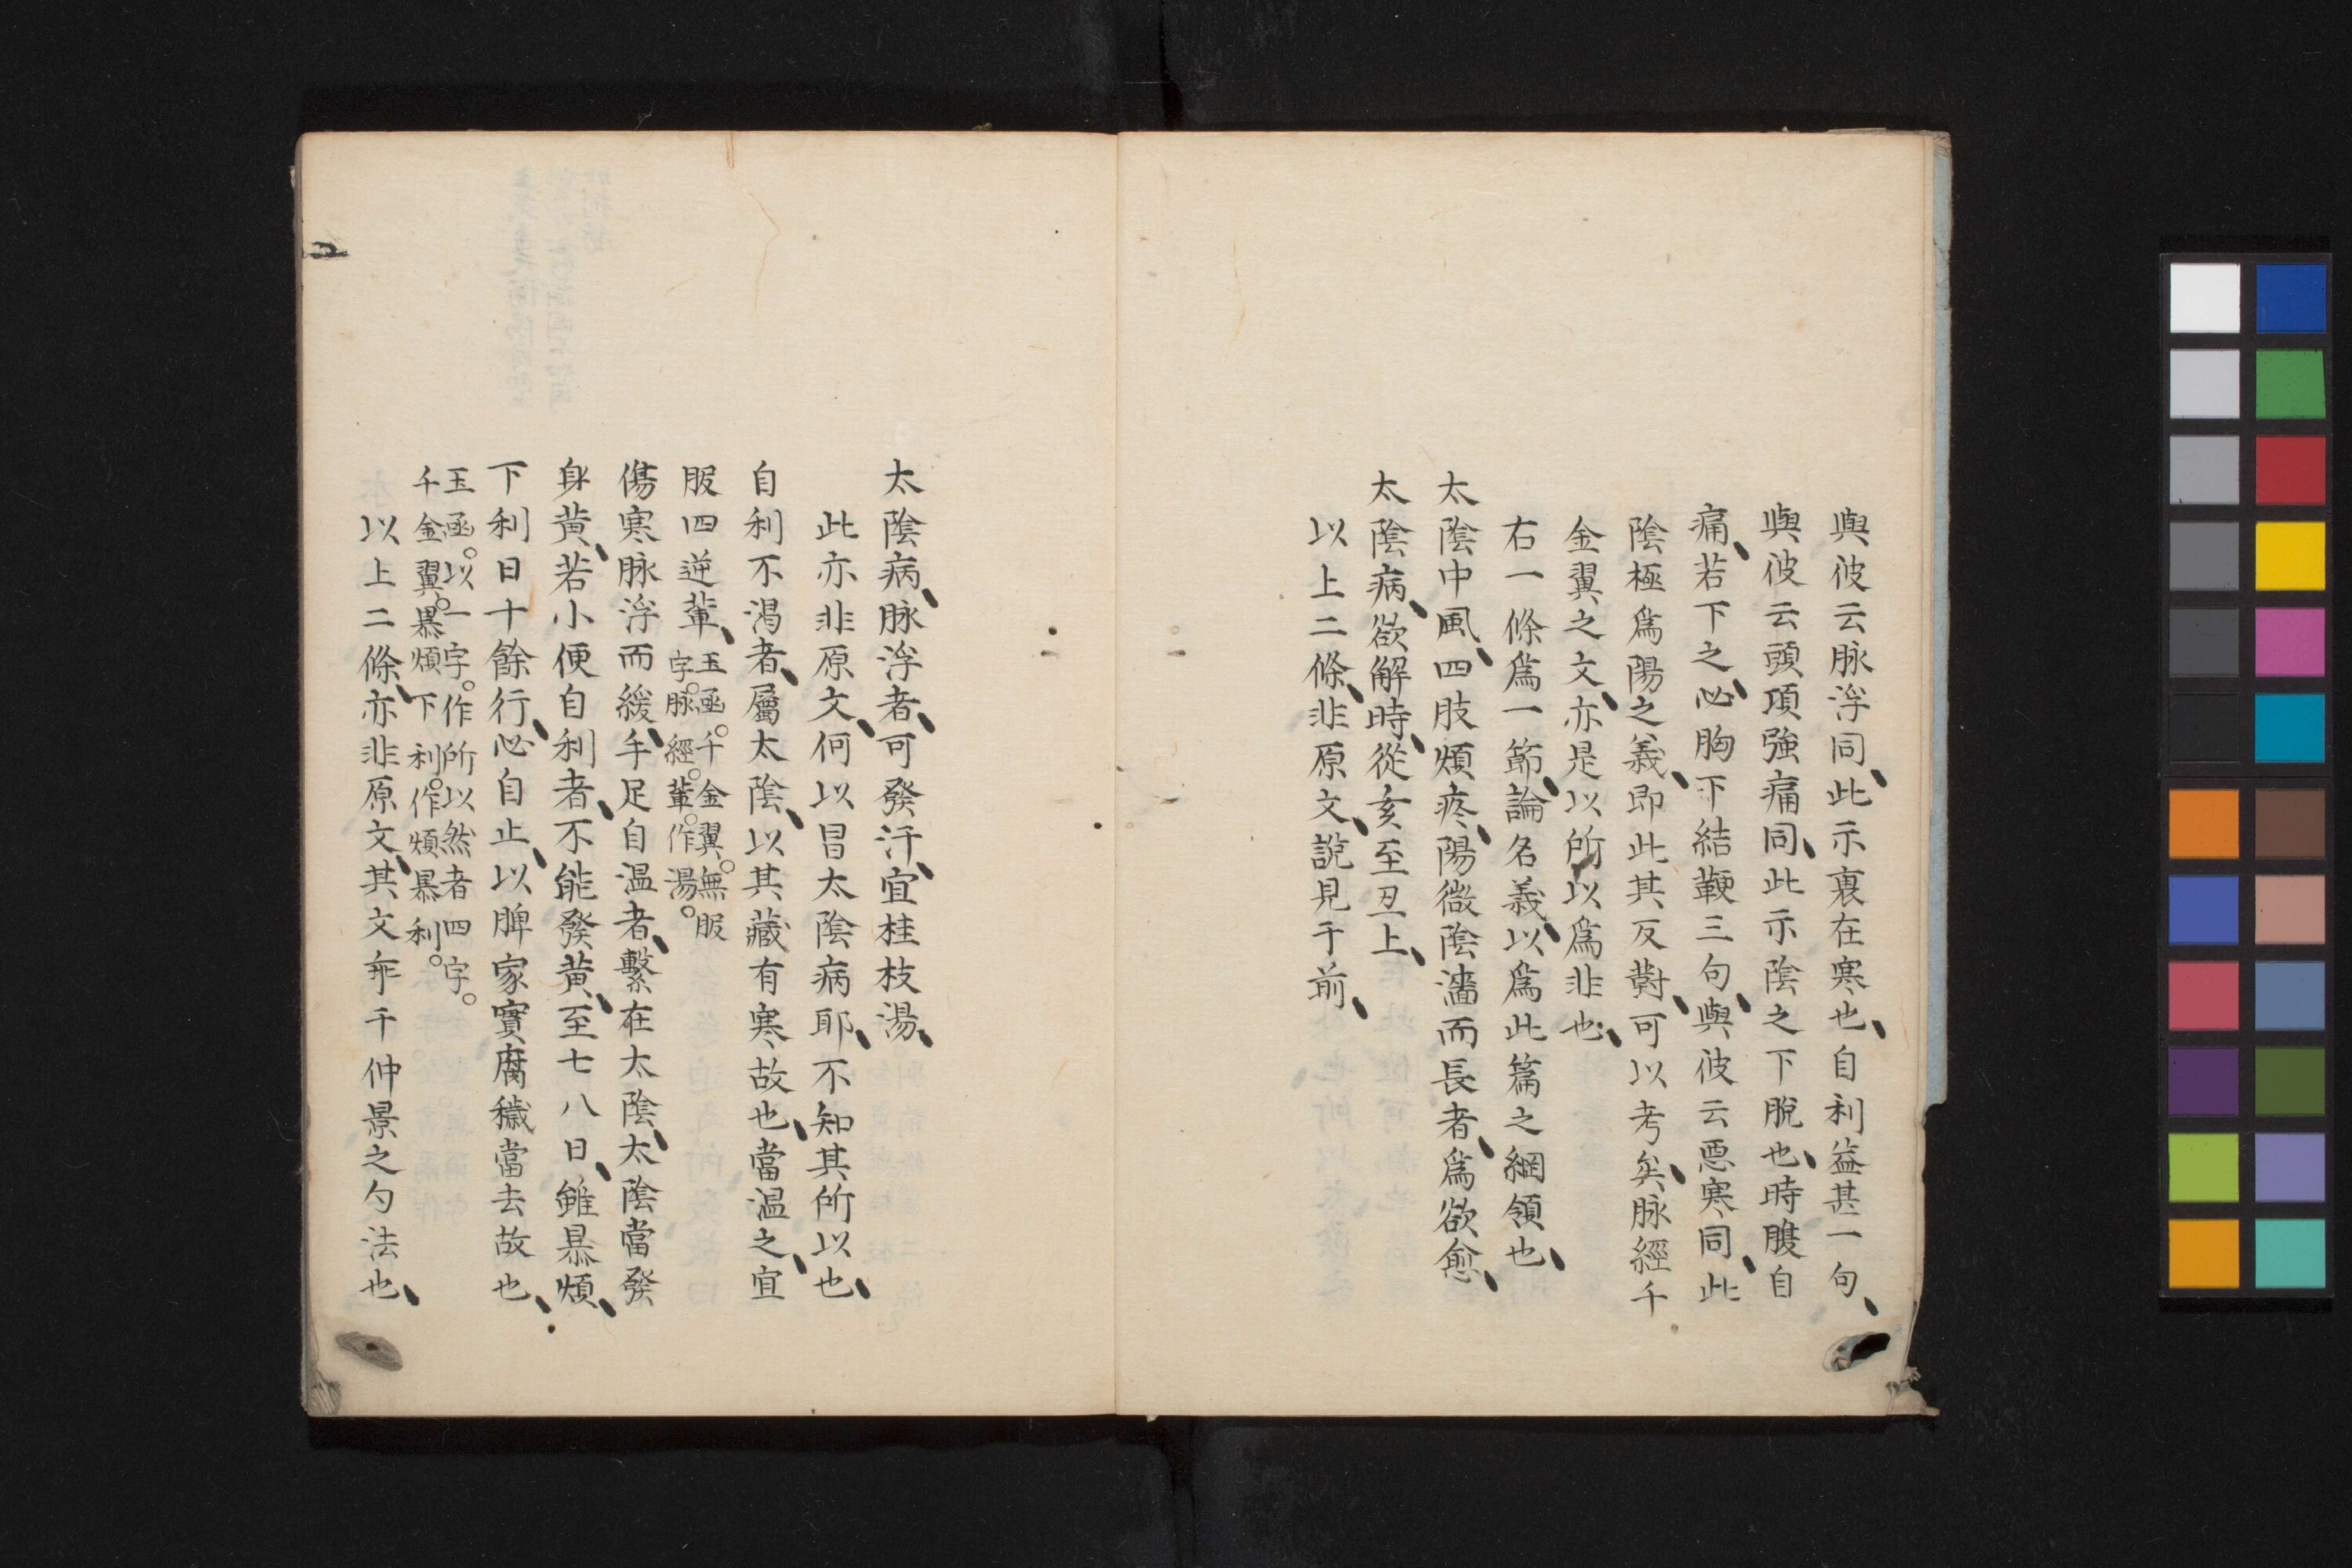 與彼云脉浮同、此示裏在寒也、自利益甚一句、
與彼云頭項強痛同、此示陰之下脫也、時腹自
痛、若下之、必胸下結鞕三句、與彼云惡寒同、此
陰極爲陽之義、即此其反對、可以考矣、脉經千
金翼之文、亦是以所以爲非也、
右一條爲一節、論名義、以爲此篇之綱領也、
太陰中風、四肢煩疼、陽微陰濇而長者、爲欲愈、
太陰病、欲解時、從亥至丑上、
以上二條、非原文、說見于前、
太陰病、脉浮者、可發汗、宜桂枝湯、
此亦非原文、何以冒太陰病耶、不知其所以也、
自利不渴者、屬太陰、以其藏有寒故也、當温之、宜
服四逆輩、玉函。千金翼。無服
字。脉經。輩。作湯。
傷寒脉浮而緩、手足自温者、繫在太陰、太陰當發
身黄、若小便自利者、不能發黄、至七八日、雖暴煩、
下利日十餘行、必自止、以脾家實腐穢當去故也、
玉函。以一字。作所以然者四字。
千金翼。暴煩下利。作煩暴利。
以上二條、亦非原文、其文乖千仲景之勺法也、
二